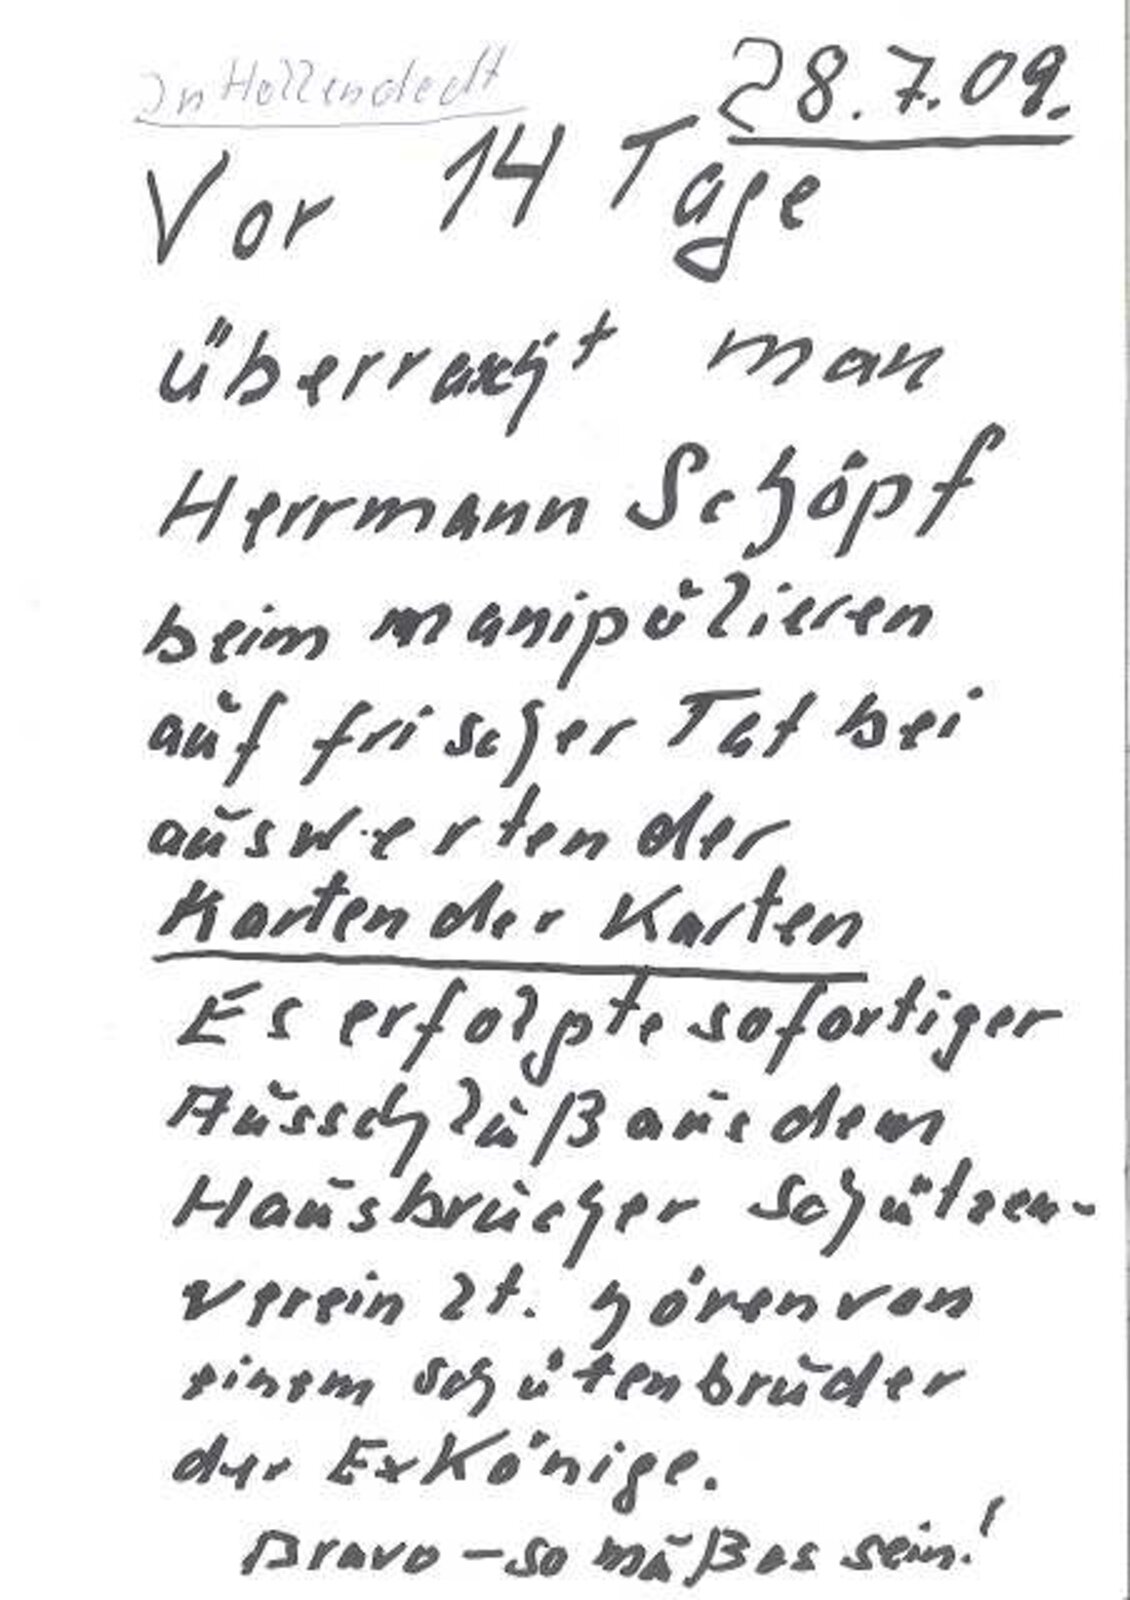 In Hollenstedt 28.7.09.
Vor 14 Tage
überrascht man
Herrmann Schöpf
beim manipulieren
auf frischer Tat bei
auswerten der
Karten der Karten
Es erfolgte sofortiger
Ausschluß aus dem
Hausbrucher Schützen-
verein lt. hören von
einem schütenbruder
der ExKönige.
Bravo - so muß es sein!